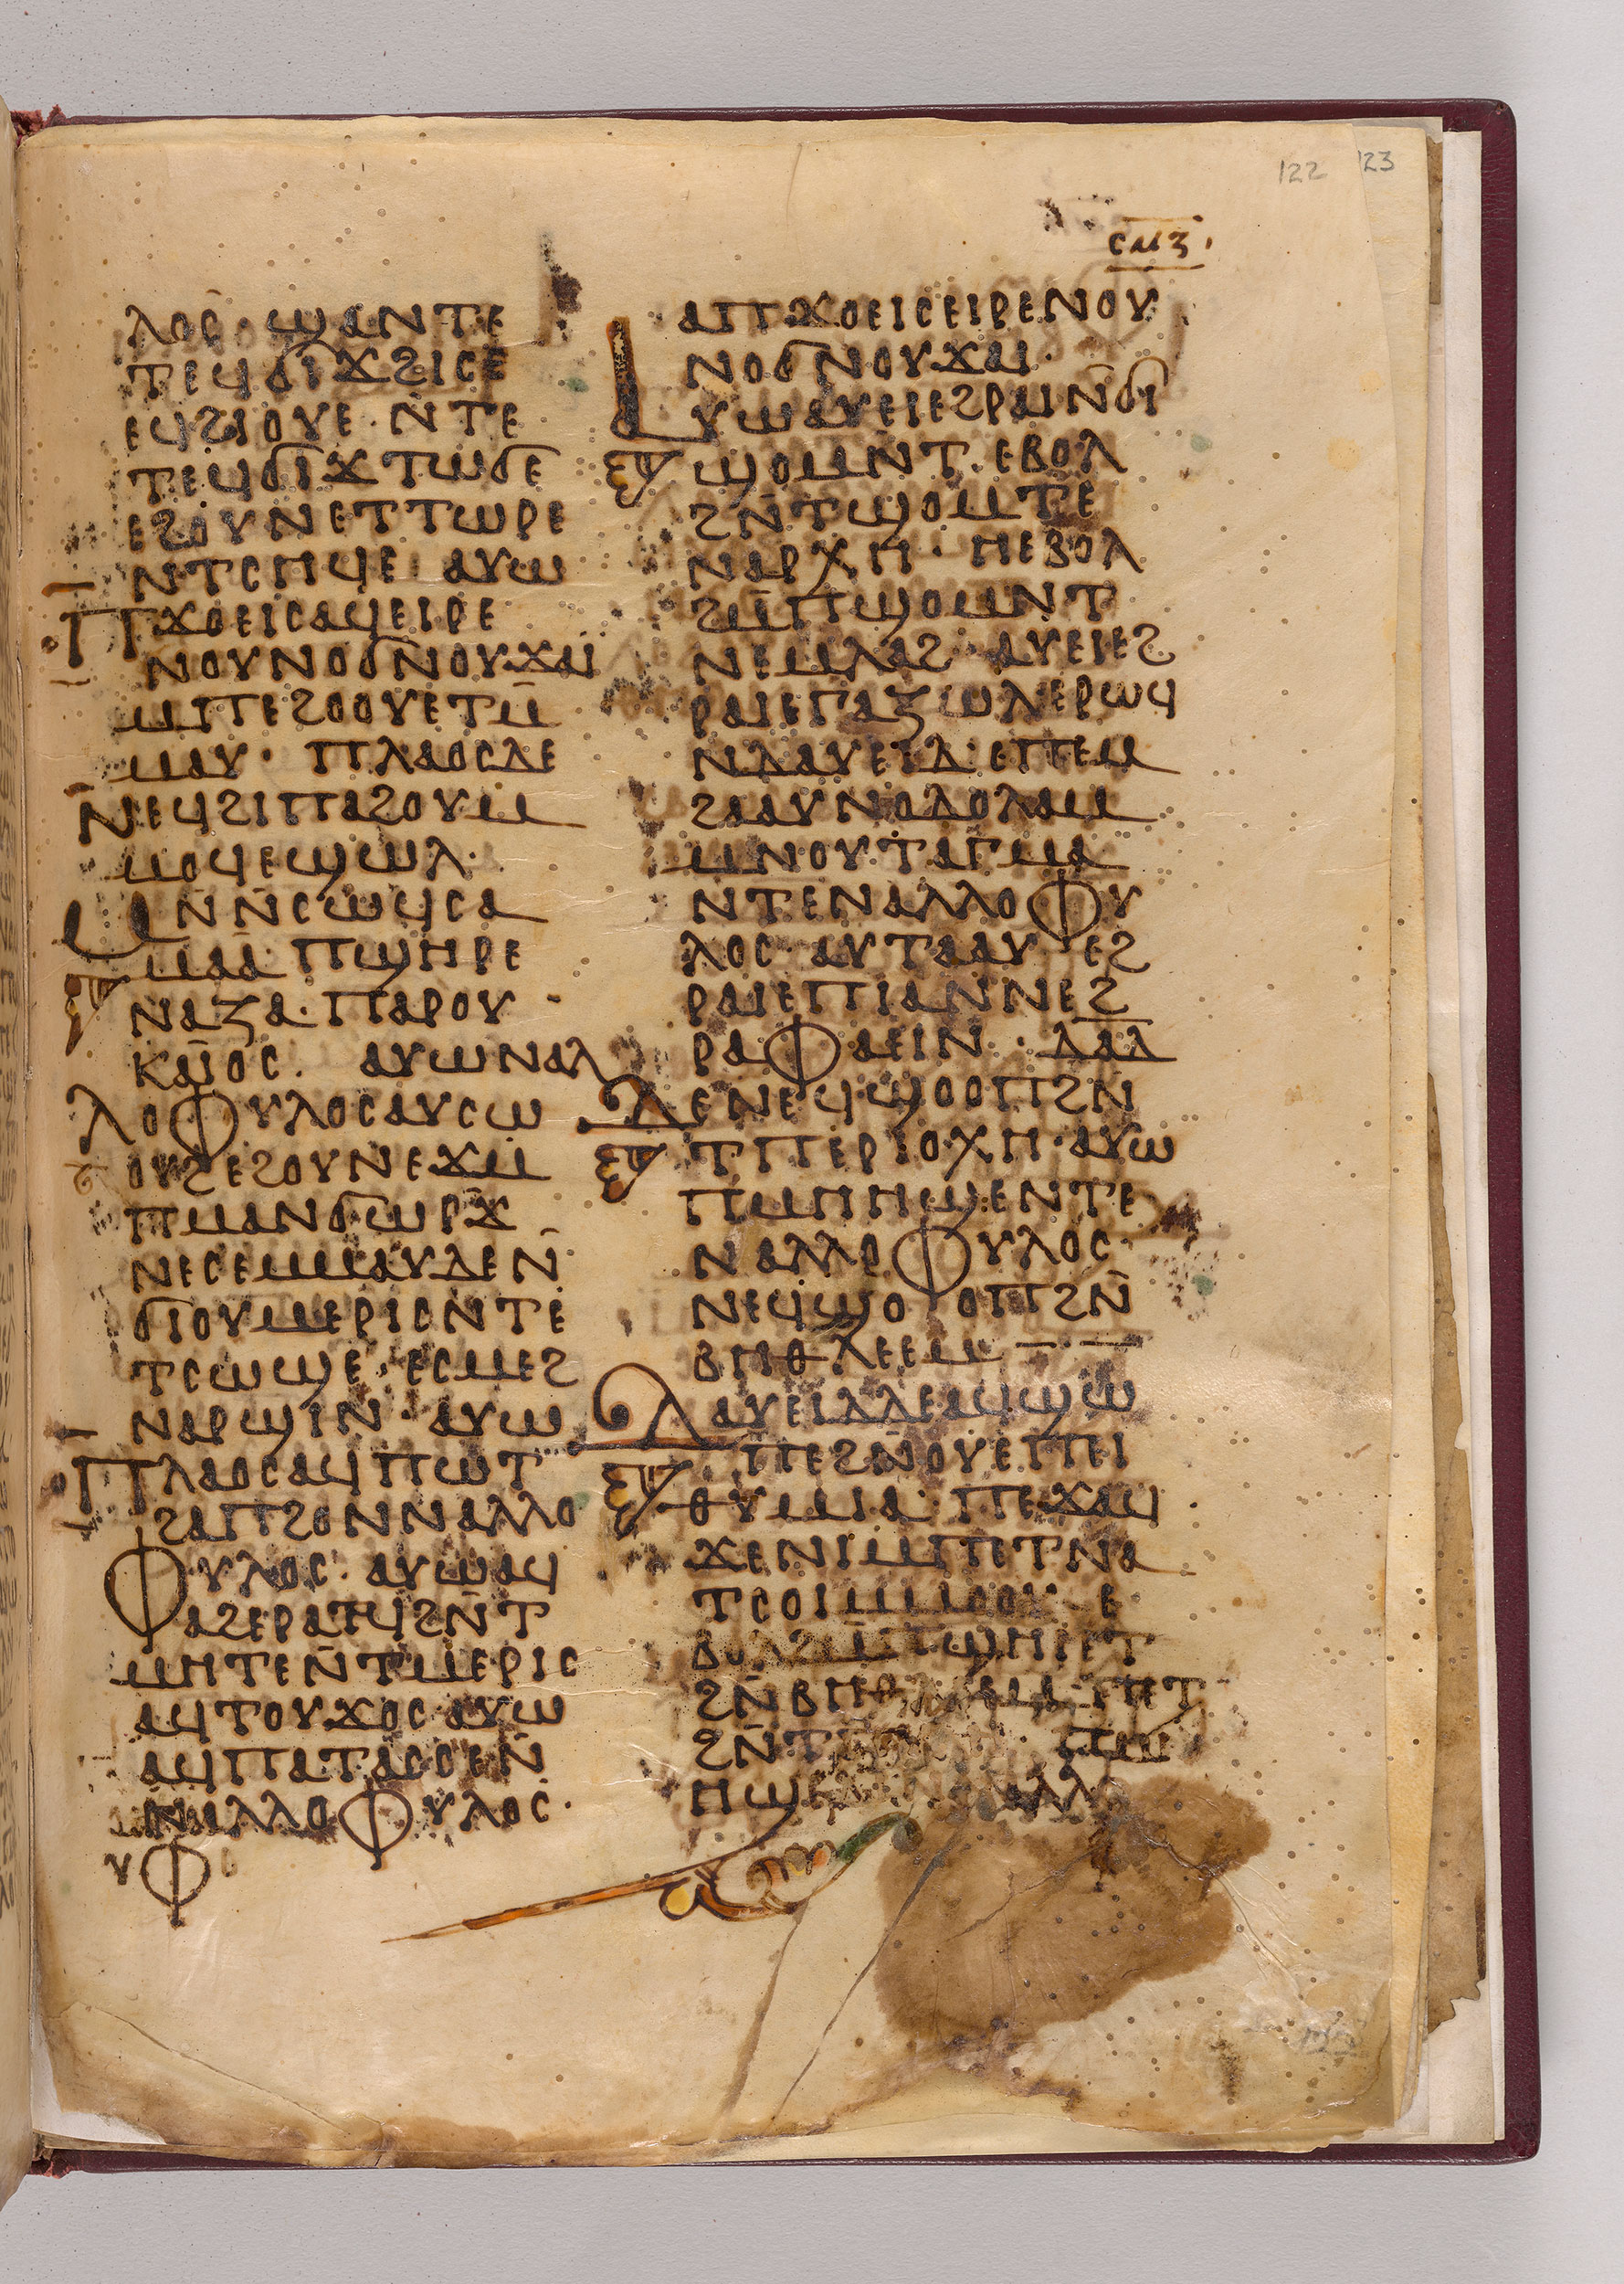 122 123
ⲥⲙⲍ
ⲗⲟⲥ· ϣⲁⲛⲧⲉ
ⲧⲉϥϭⲓϫϩⲓⲥⲉ
ⲉϥϩⲓⲟⲩⲉ· ⲛ̄ⲧⲉ
ⲧⲉϥϭⲓϫⲧⲱϭⲉ
ⲉϩⲟⲩⲛⲉⲧⲧⲱⲣⲉ
ⲛⲧⲥⲏϥⲉ ⲁⲩⲱ
ⲡϫⲟⲉⲓⲥⲁϥⲉⲓⲣⲉ
ⲛⲟⲩⲛⲟϭⲛⲟⲩϫⲁⲓ̈
ⲙⲡⲉϩⲟⲟⲩⲉⲧⲙ̄
ⲙⲁⲩ· ⲡⲗⲁⲟⲥⲇⲉ
ⲛⲉϥϩⲓⲡⲁϩⲟⲩⲙ
ⲙⲟϥⲉϣϣⲗ·
ⲙⲛ̄ⲛ̄ⲥⲱϥⲥⲁ
ⲙⲁⲁ· ⲡϣⲏⲣⲉ
ⲛⲁⲍⲁ· ⲡⲁⲣⲟⲩ
ⲕⲁⲓ̈ⲟⲥ· ⲁⲩⲱⲛⲁⲗ
ⲗⲟⲫⲩⲗⲟⲥⲁⲩⲥⲱ
ⲟⲩϩⲉϩⲟⲩⲛⲉϫⲙ
ⲡⲙⲁⲛϭⲱⲣϫ
ⲛⲉⲥⲉⲙⲙⲁⲩⲇⲉⲛ̄
ϭⲓⲟⲩⲙⲉⲣⲓⲥⲛⲧⲉ
ⲧⲥⲱϣⲉ· ⲉⲥⲙⲉϩ
ⲛⲁⲣϣⲓⲛ· ⲁⲩⲱ
ⲡⲗⲁⲟⲥⲁϥⲡⲱⲧ
ϩⲁⲡϩⲟⲛⲛⲁⲗⲗⲟ
ⲫⲩⲗⲟⲥ· ⲁⲩⲱⲁϥ
ⲁϩⲉⲣⲁⲧϥϩⲛ̄ⲧ
ⲙⲏⲧⲉⲛ̄ⲧⲙⲉⲣⲓⲥ
ⲁϥⲧⲟⲩϫⲟⲥⲁⲩⲱ
ⲁϥⲡⲁⲧⲁⲥⲥⲉⲛ̄
ⲛⲁⲗⲗⲟⲫⲩⲗⲟⲥ·
ⲩⲫ
ⲁⲡϫⲟⲉⲓⲥⲉⲓⲣⲉⲛⲟⲩ
ⲛⲟϭⲛⲟⲩϫⲁⲓ·
ⲁⲩⲱⲁⲩⲉⲓⲉϩⲣⲁⲓⲛ̄ϭⲓ
ϣⲟⲙⲛⲧ· ⲉⲃⲟⲗ
ϩⲛ̄ⲧϣⲟⲙⲧⲉ
ⲛⲁⲣⲭⲏ· ⲏⲉⲃⲟⲗ
ϩⲙ̄ⲡϣⲟⲙⲛⲧ
ⲛⲉⲙⲗⲁϩ· ⲁⲩⲉⲓⲉϩ
ⲣⲁⲓⲉⲅⲁⲍⲱⲗⲉⲣⲱϥ
ⲛⲇⲁⲩⲉⲓⲇ· ⲉⲡⲉⲙ
ϩⲁⲁⲩⲛⲟⲇⲟⲗⲁⲙ
ⲙⲛⲟⲩⲧⲁⲅⲙⲁ
ⲛⲧⲉⲛⲁⲗⲗⲟⲫⲩ
ⲗⲟⲥ· ⲁⲩⲧⲁⲁⲩ ⲉϩ
ⲣⲁⲓⲉⲡⲓⲁⲛⲛⲉϩ
ⲣⲁⲫⲁⲉⲓⲛ· ⲇⲁⲇ
ⲇⲉⲛⲉϥϣⲟⲟⲡϩⲛ
ⲧⲡⲉⲣⲓⲟⲭⲏ· ⲁⲩⲱ
ⲡⲙⲏⲏϣⲉⲛⲧⲉ
ⲛⲁⲗⲗⲟⲫⲩⲗⲟⲥ·
ⲛⲉϥϣⲟⲟⲡϩⲛ̄
ⲃⲏⲑⲗⲉⲉⲙ
ⲇⲁⲩⲉⲓⲇⲇⲉⲁϥϣⲱ
ⲡⲉϩⲛ̄ⲟⲩⲉⲡⲓ
ⲑⲩⲙⲓⲁ· ⲡⲉϫⲁϥ
ϫⲉⲛⲓⲙⲡⲉⲧⲛⲁ
ⲧⲥⲟⲓⲙⲙⲟⲟⲩ ⲉ
ⲃⲟⲗϩⲙ̄ⲡϣⲏⲓⲉⲧ
ϩⲛ̄ⲃⲏⲑ ⲡⲉⲧ
ϩⲛ̄ⲧ ⲡⲙ
ⲏϣⲉ ⲁⲗⲗ